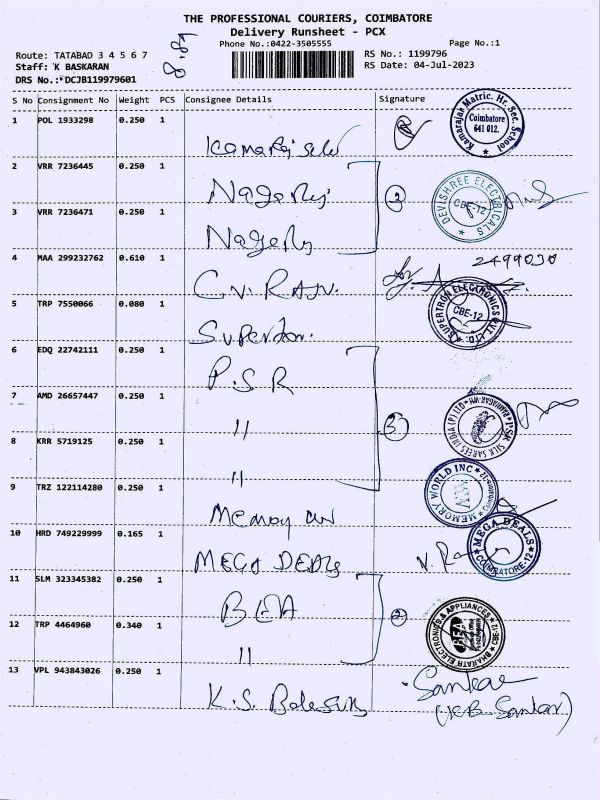 THE PROFESSIONAL COURIERS, COIMBATORE
Delivery Runsheet - PCX
Phone No.:0422-3505555 Page No.:1
Route: TATABAD 3 4 5 6 7 RS No.: 1199796
Staff: K BASKARAN RS Date: 04-Jul-2023
DRS No.: DCJB119979601
S No Consignment No Weight PCS Consignee Details Signature
1 POL 1933298 0.250 1
Kamarajar Matric. Hr. Sec. School Coimbatore 641 012.
2 VRR 7236445 0.250 1
Nageraj 2 DEVISHREE ELECTRICALS CBE-12
3 VRR 7236471 0.250 1
4 MAA 299232762 0.610 1 2499030
C.V. RAJU.
SUPERTRON ELECTRONICS PVT. LTD. CBE-12
5 TRP 7550066 0.080 1
6 EDQ 22742111 0.250 1
P.S.R
7 AMD 26657447 0.250 1
" 3 PSR SILK SAREES INDIA (P) LTD
8 KRR 5719125 0.250 1
"
9 TRZ 122114280 0.250 1
MEMORY WORLD INC
10 HRD 749229999 0.165 1
MEGA DEALS MEGA DEALS COIMBATORE-12
11 SLM 323345382 0.250 1
BEA 2 BHARATH ELECTRONICS & APPLIANCES CBE-12 BEA
12 TRP 4464960 0.340 1
"
13 VPL 943843026 0.250 1 Sankar
K.S. (K.B. Sankar)